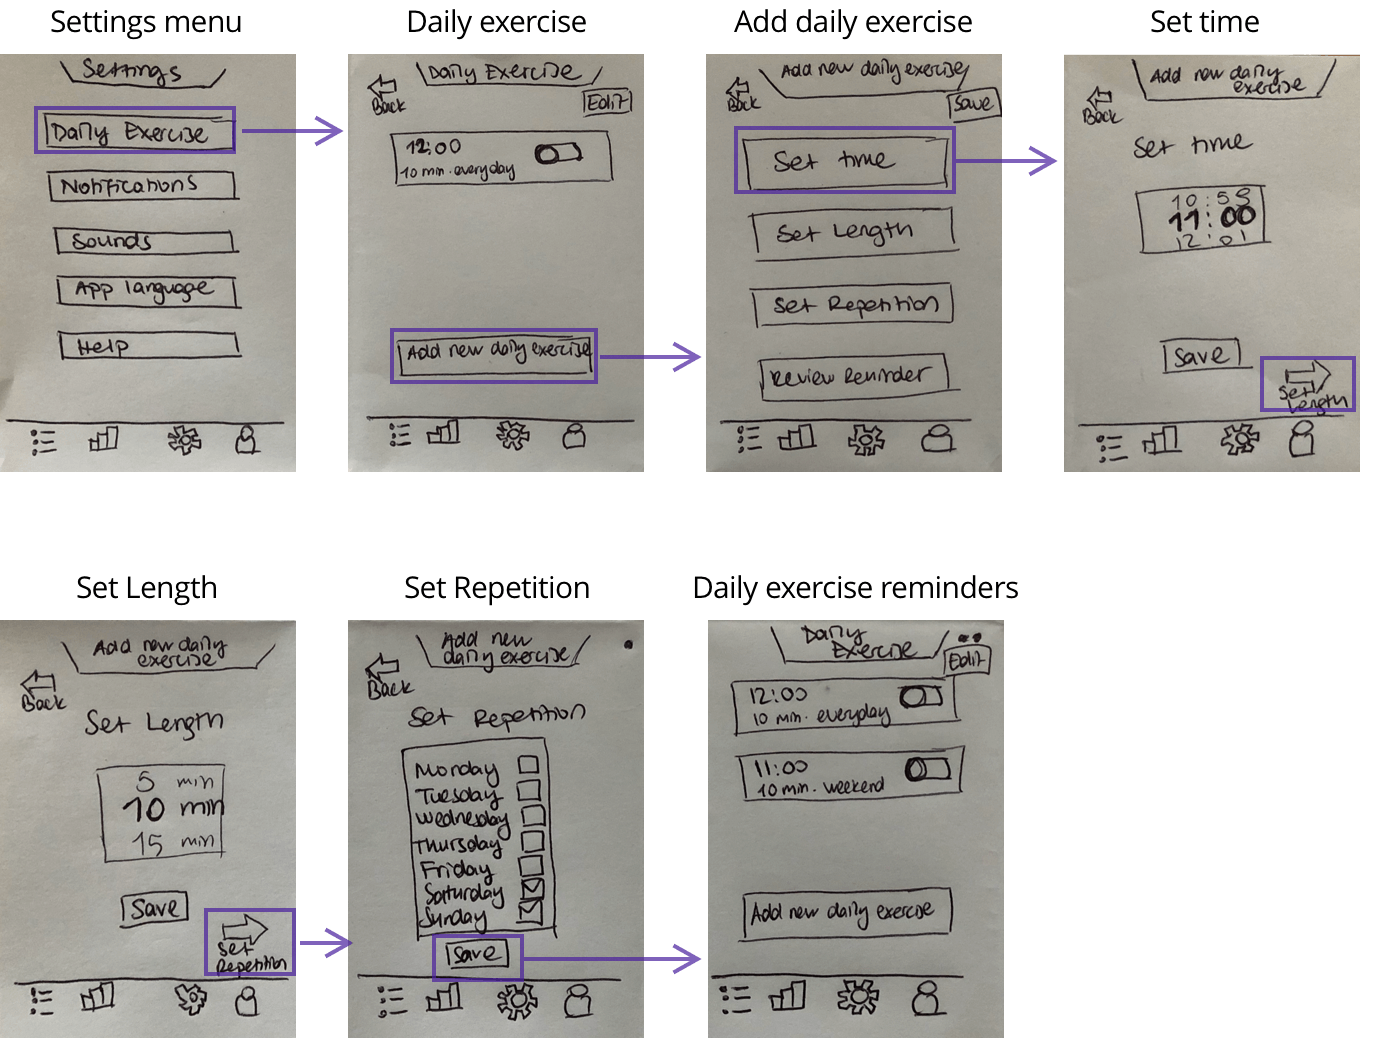 Settings menu
Settings
Daily Exercise
Notifications
Sounds
App language
Help
Daily exercise
Daily Exercise
Back
Edit
12:00
10 min. everyday
Add new daily exercise
Add daily exercise
Add new daily exercise
Back
Save
Set time
Set Length
Set Repetition
Review Reminder
Set time
Add new daily
exercise
Back
Set time
10:59
11:00
12:01
Save
Set
Length
Set Length
Add new daily
exercise
Back
Set Length
5 min
10 min
15 min
Save
Set
Repetition
Set Repetition
Add new
daily exercise
Back
Set Repetition
Monday
Tuesday
Wednesday
Thursday
Friday
Saturday
Sunday
Save
Daily exercise reminders
Daily
Exercise
Edit
12:00
10 min. everyday
11:00
10 min. weekend
Add new daily exercise